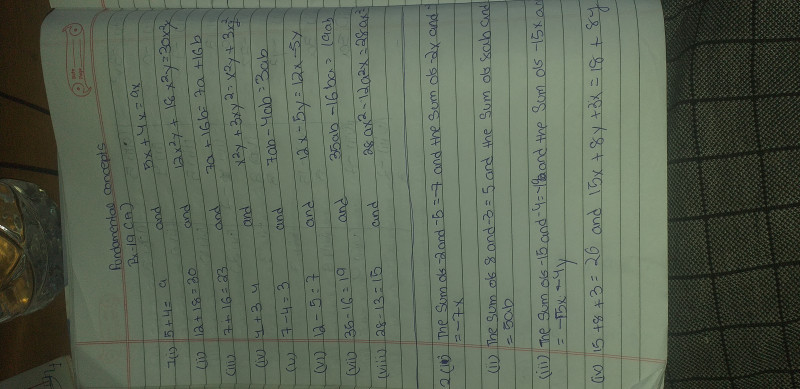 Fundamental concepts
Ex-19 (A)
1(i) 5+4=9 and 5x+4x=9x
(ii) 12+18=30 and 12x²y+18x²y=30x²y
(iii) 7+16=23 and 7a+16b=7a+16b
(iv) 1+3 and x²y+3xy²=x²y+3xy²
(v) 7-4=3 and 7ab-4ab=3ab
(vi) 12-5=7 and 12x-5y=12x-5y
(vii) 35-16=19 and 35ab-16ba=19ab
(viii) 28-13=15 and 28ax²-12a2x=28ax²
2(i) The sum of -2 and -5=-7 and the sum of -2x and
=-7x
(ii) The sum of 8 and -3=5 and the sum of 8ab and
=5ab
(iii) The sum of -15 and -4=-19 and the sum of -15x and
=-15x-4y
(iv) 15+8+3=26 and 15x+8y+3x=18+8y